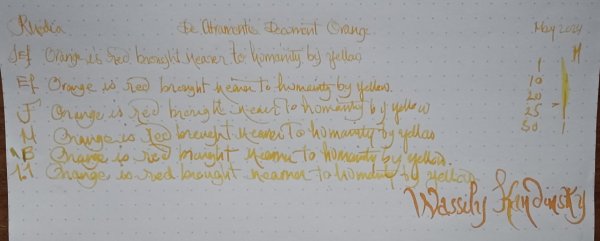 Rhodia De Atramentis Document Orange May 2024
Ef Orange is red brought nearer to humanity by yellow 1 M
Ef Orange is red brought nearer to humanity by yellow. 10
F Orange is red brought nearer to humanity by yellow 20
M Orange is red brought nearer to humanity by yellow 25
B Orange is red brought nearer to humanity by yellow. 50 1
Orange is red brought nearer to humanity by yellow.
Wassily Kandinsky